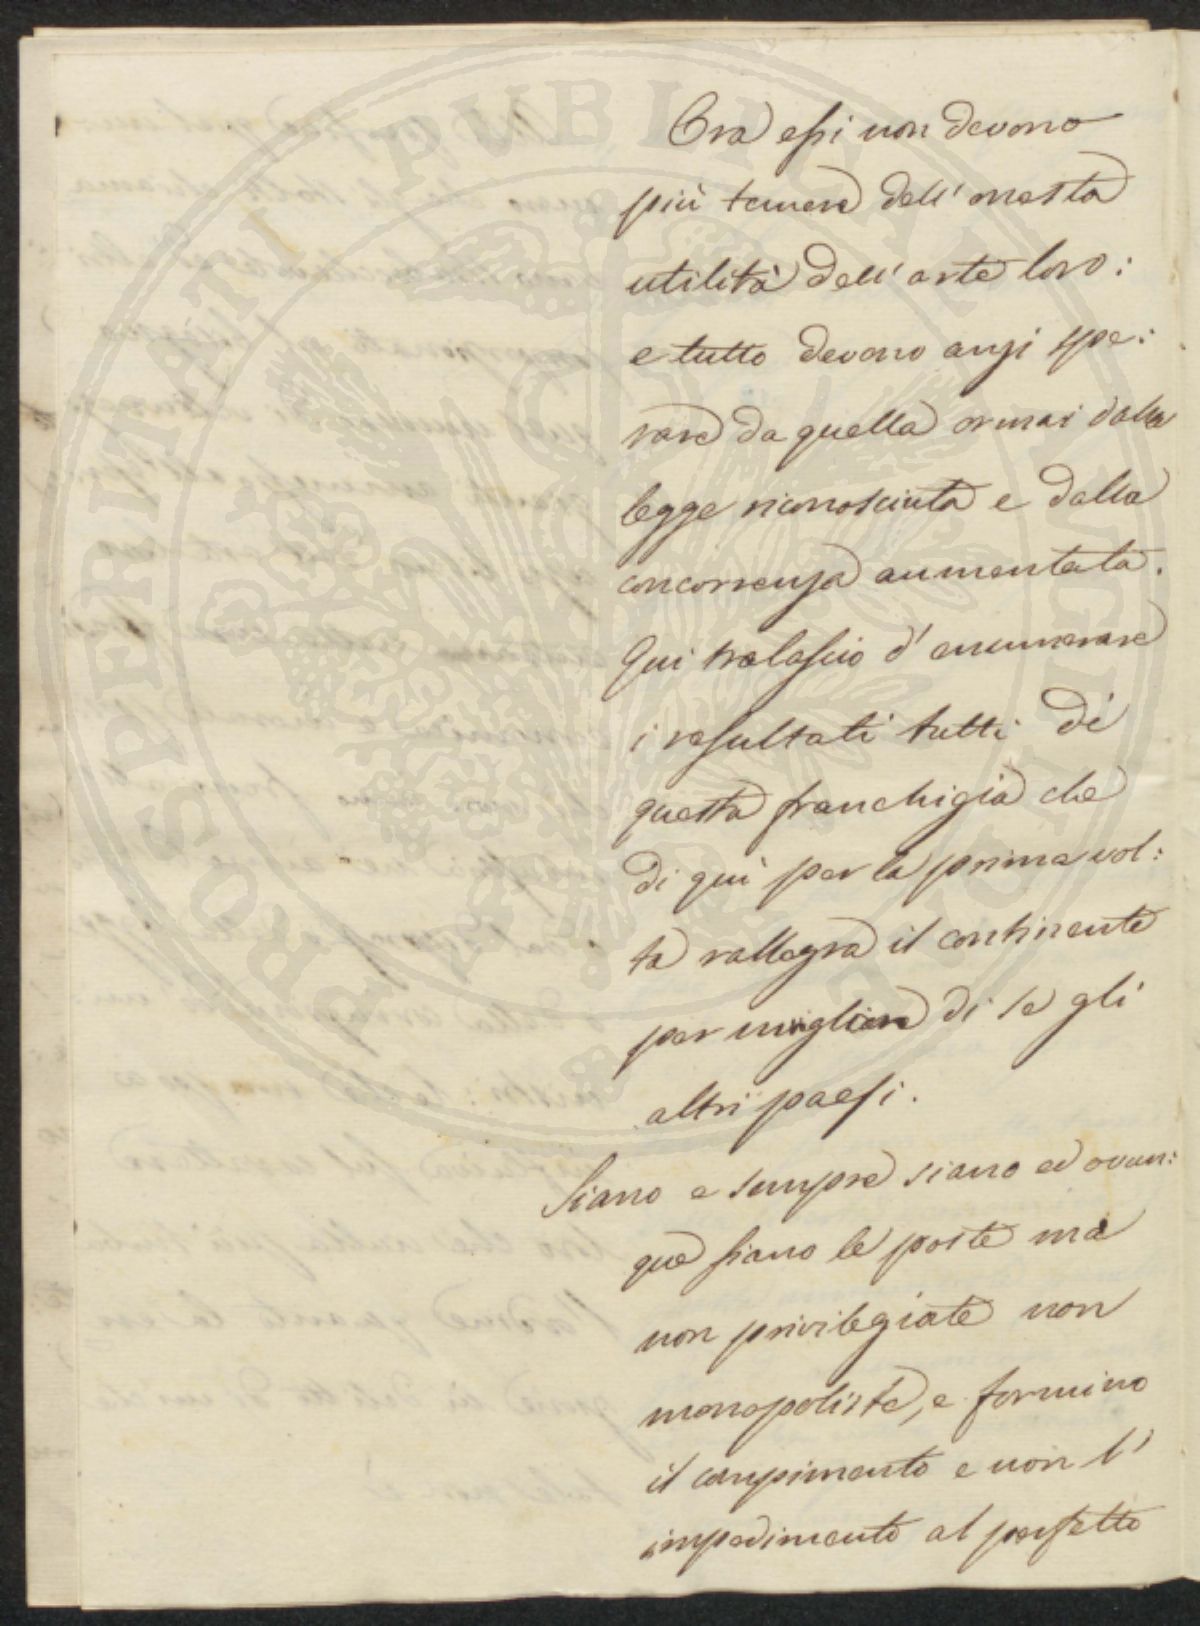 Ora essi non devono
più temere dell' onesta
utilità dell' arte loro:
e tutto devono anzi spe:
rare da quella ormai dalla
legge riconosciuta e dalla
concorrenza aumentata.
Qui tralascio d' enumerare
i resultati tutti di
questa franchigia che
di quì per la prima vol:
ta rallegra il continente
per migliore di se gli
altri paesi.
Siano e sempre siano ed ovun:
que siano le poste ma
non privilegiate non
monopoliste, e formino
il compimento e non l'
impedimento al perfetto
PROSPERITATI PUBLICAE AUGENDAE